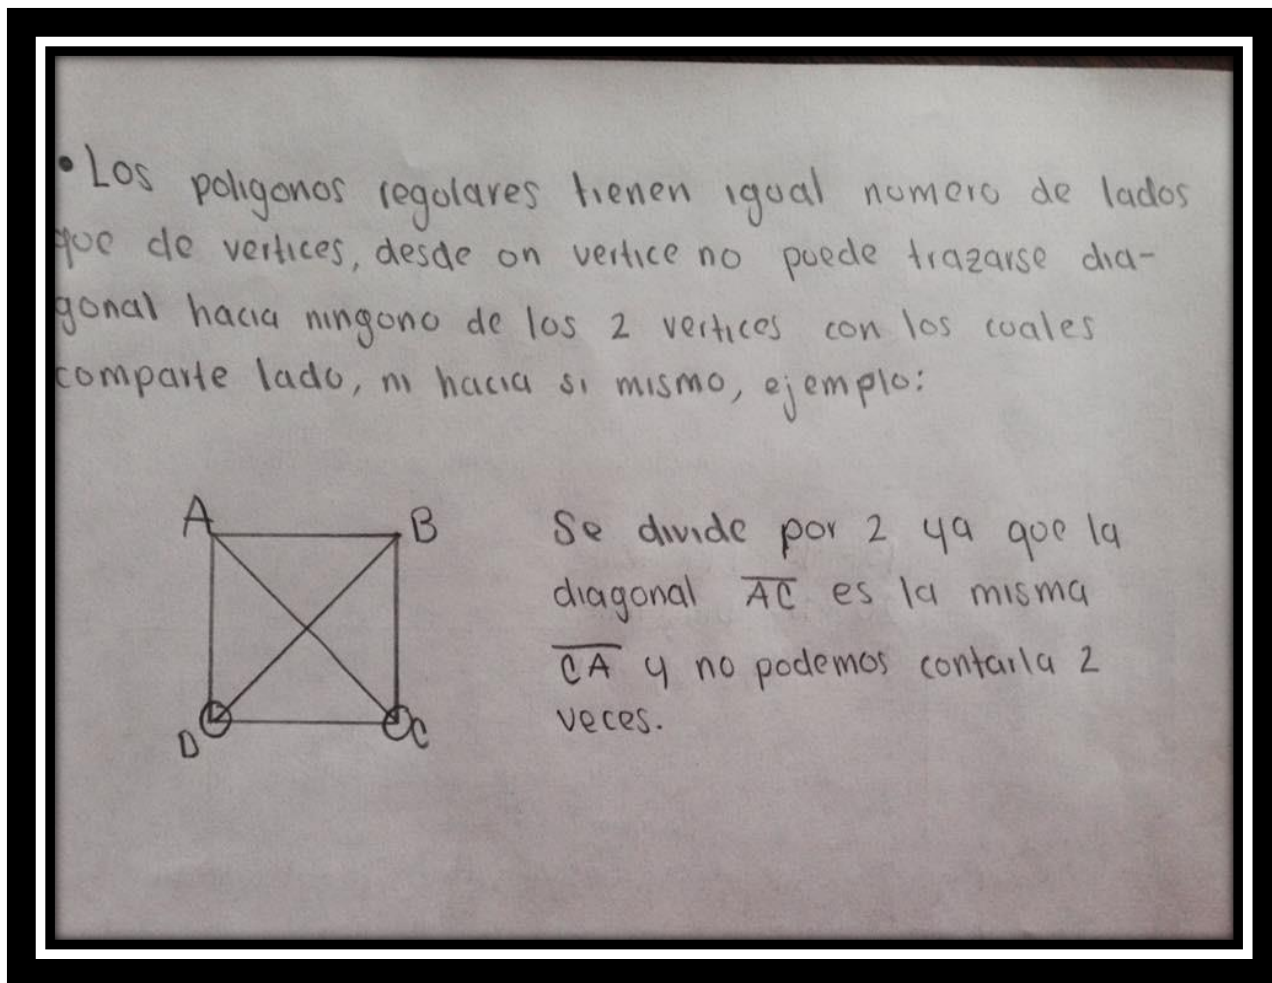 • Los poligonos regulares tienen igual numero de lados
que de vertices, desde un vertice no puede trazarse dia-
gonal hacia ninguno de los 2 vertices con los cuales
comparte lado, ni hacia si mismo, ejemplo:
A B
Se divide por 2 ya que la
diagonal A̅C̅ es la misma
C̅A̅ y no podemos contarla 2
veces.
D C